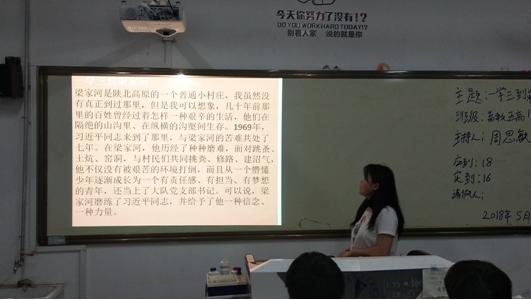 今天你努力了没有！？
DO YOU WORK HARD TODAY!?
别看人家 说的就是你
梁家河是陕北高原的一个普通小村庄，我虽然没
有真正到过那里，但是我可以想象，几十年前那
里的百姓曾经过着怎样一种艰辛的生活，他们在
隔绝的山沟里、在纵横的沟壑间生存。1969年，
习近平同志来到了那里，与梁家河的苦难共处了
七年。在梁家河，他历经了种种磨难，面对跳蚤、
土炕、窑洞，与村民们共同挑粪、修路、建沼气，
他不仅没有被艰苦的环境打倒，而且从一个懵懂
少年逐渐成长为一个有责任感、有担当、有梦想
的青年，还当上了大队党支部书记。可以说，梁
家河磨练了习近平同志，并给予了他一种信念、
一种力量。
主题：一学三到
主持人：周思敏
应到：18
实到：16
2018年5月